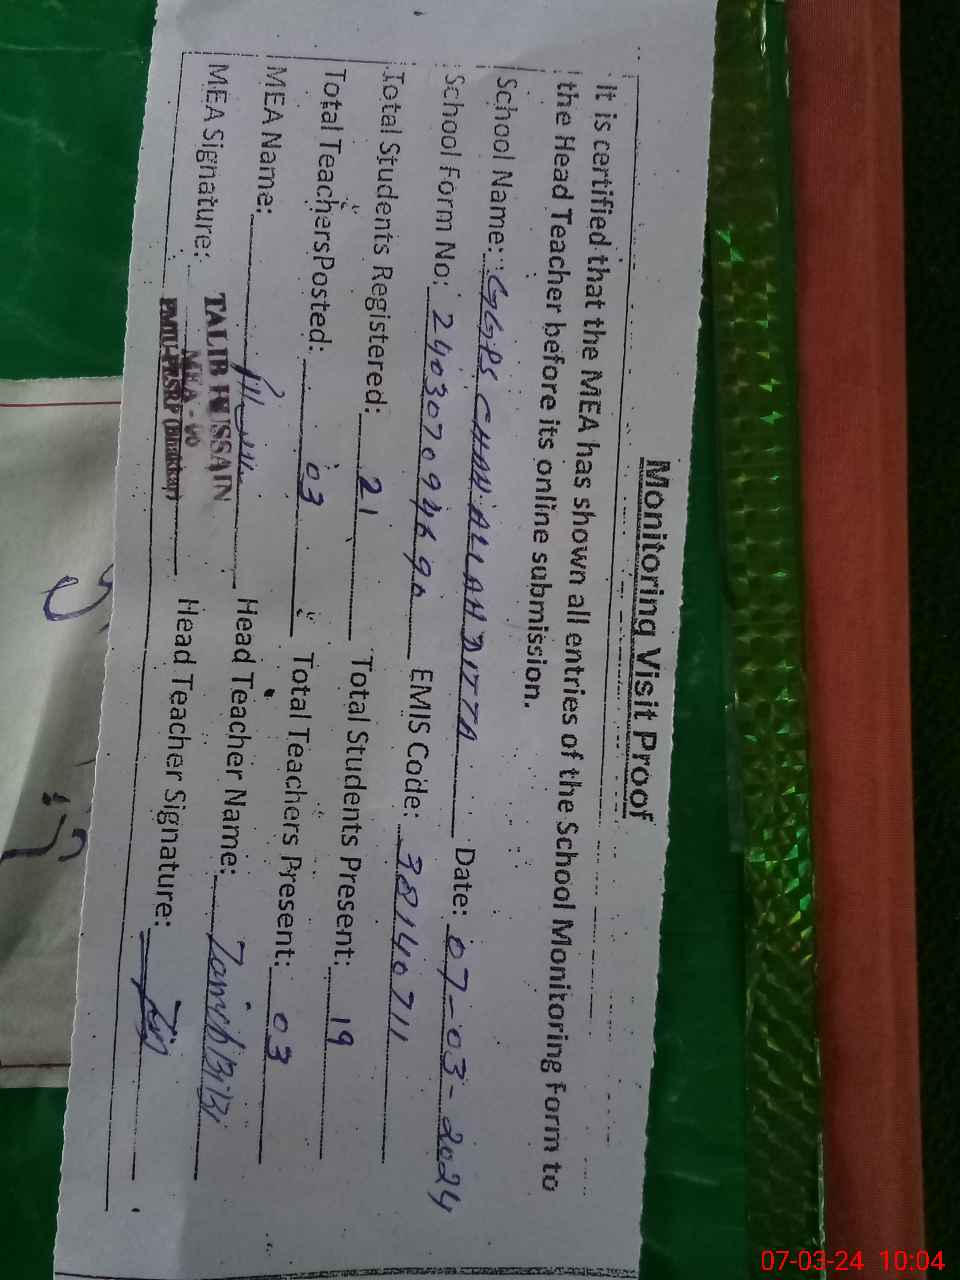 Monitoring Visit Proof
It is certified that the MEA has shown all entries of the School Monitoring Form to
the Head Teacher before its online submission.
School Name: GGPS CHAH ALLAH DITTA Date: 07-03-2024
School Form No: 240307094690 EMIS Code: 38140711
Total Students Registered: 21 Total Students Present: 19
Total Teachers Posted: 03 Total Teachers Present: 03
MEA Name: Head Teacher Name: Zainab BiBi
MEA Signature: Head Teacher Signature:
TALIB HUSSAIN
MEA -
PMIU-PESRP (Bhakkar)
07-03-24 10:04